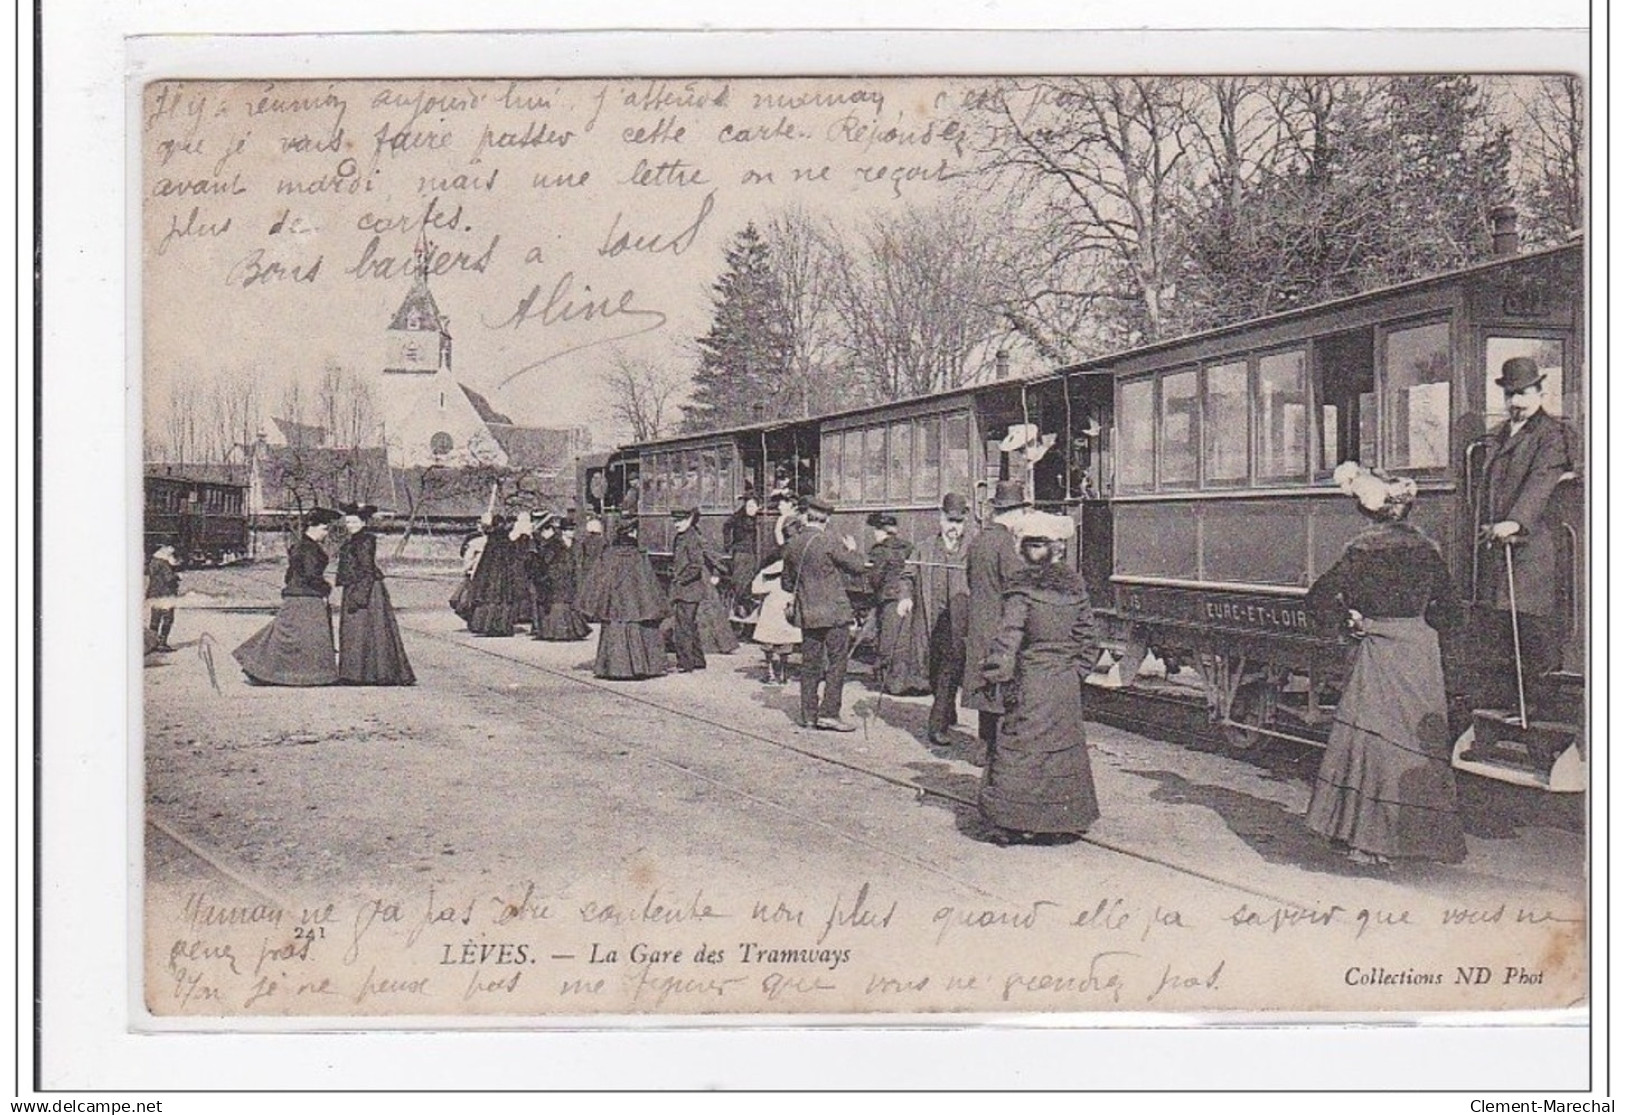 Il y a réunion aujourd'hui. j'attends maman, c'est par
que je vais faire passer cette carte. Répondez
avant mardi mais une lettre, on ne reçoit
plus de cartes.
Bons baisers à tous
Aline
EURE-ET-LOIR
Maman ne va pas être contente non plus quand elle va savoir que vous ne
venez pas.
241
LÈVES. — La Gare des Tramways
je ne peux pas me figurer que vous ne viendrez pas.
Collections ND Phot
delcampe.net
Clement-Marechal